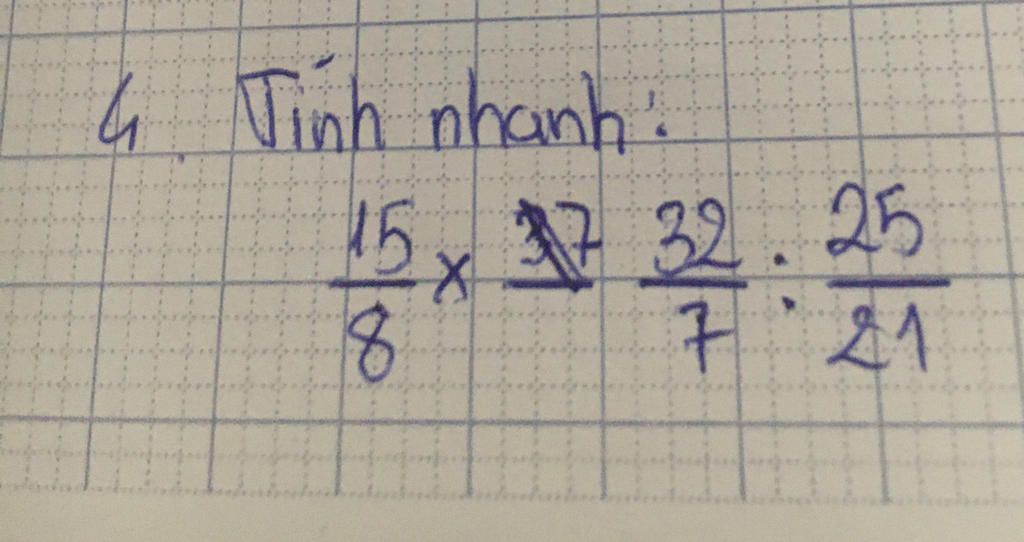 4. Tính nhanh:
15/8 x 32/7 : 25/21